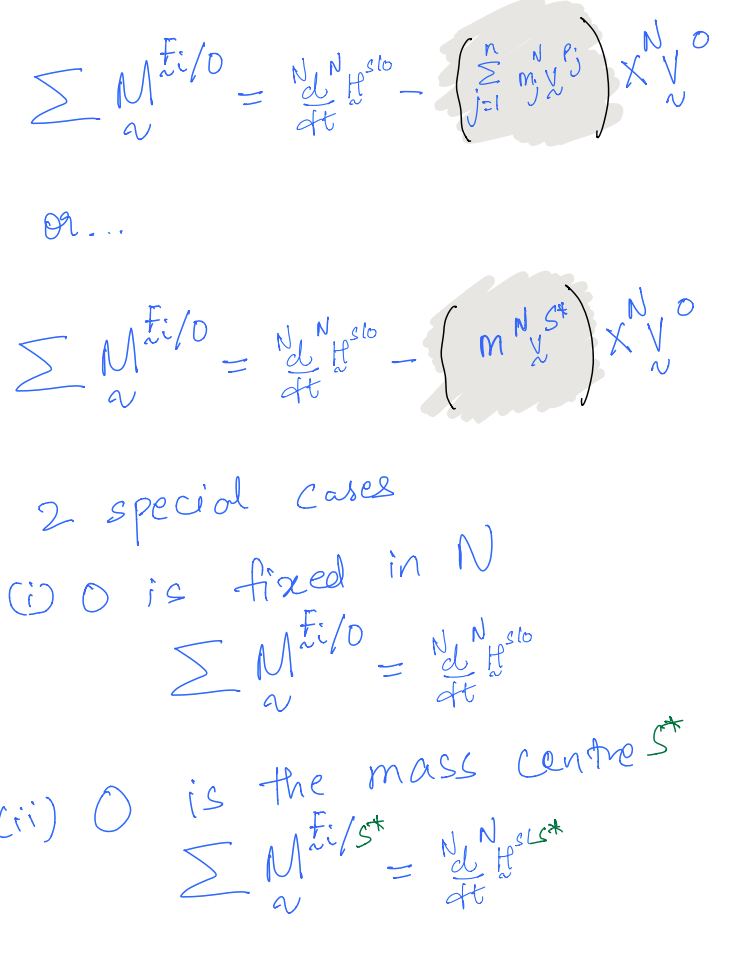 ∑ M̰^{F̰i/O} = ᴺd/dt ᴺH̰^{S/O} − (∑_{j=1}^{n} m_j ᴺV̰^{P_j}) × ᴺV̰^{O}
or...
∑ M̰^{F̰i/O} = ᴺd/dt ᴺH̰^{S/O} − (m ᴺV̰^{S*}) × ᴺV̰^{O}
2 special cases
(i) O is fixed in N
∑ M̰^{F̰i/O} = ᴺd/dt ᴺH̰^{S/O}
(ii) O is the mass centre S*
∑ M̰^{F̰i/S*} = ᴺd/dt ᴺH̰^{S/S*}